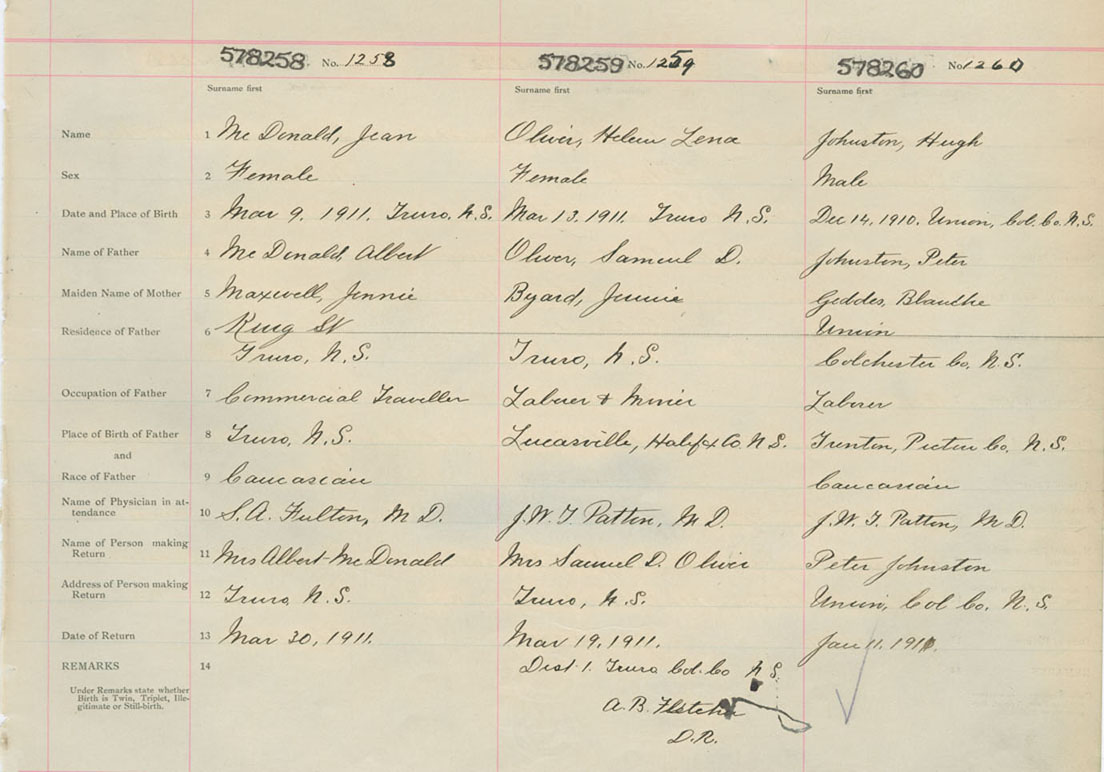 578258 No. 1258 578259 No. 1259 578260 No 1260
Surname first Surname first Surname first
Name 1 Mc Donald, Jean Oliver, Helen Lena Johnston, Hugh
Sex 2 Female Female Male
Date and Place of Birth 3 Mar 9. 1911. Truro, N.S. Mar 13. 1911. Truro N.S. Dec 14, 1910. Union, Col. Co. N.S.
Name of Father 4 Mc Donald, Albert Oliver, Samuel D. Johnston, Peter
Maiden Name of Mother 5 Maxwell, Jennie Byard, Jennie Geddes, Blanche
Residence of Father 6 King St Union
Truro, N.S. Truro, N.S. Colchester Co, N.S.
Occupation of Father 7 Commercial Traveller Laborer & Laborer
Place of Birth of Father 8 Truro, N.S. Lucasville, Halifax Co. N.S. Trenton, Pictou Co, N.S.
and
Race of Father 9 Caucasian Caucasian
Name of Physician in at-
tendance 10 S.A. Fulton, M D. J.W.T. Patton, M D. J.W.T. Patton, M D.
Name of Person making
Return 11 Mrs Albert McDonald Mrs Samuel D. Oliver Peter Johnston
Address of Person making
Return 12 Truro, N.S. Truro, N.S. Union, Col Co. N.S.
Date of Return 13 Mar 30, 1911. Mar 19, 1911. Jan 11. 1911.
REMARKS 14 Dist 1. Truro Col. Co N.S.
Under Remarks state whether
Birth is Twin, Triplet, Ille-
gitimate or Still-birth.
A.B. Fletcher
D.R.